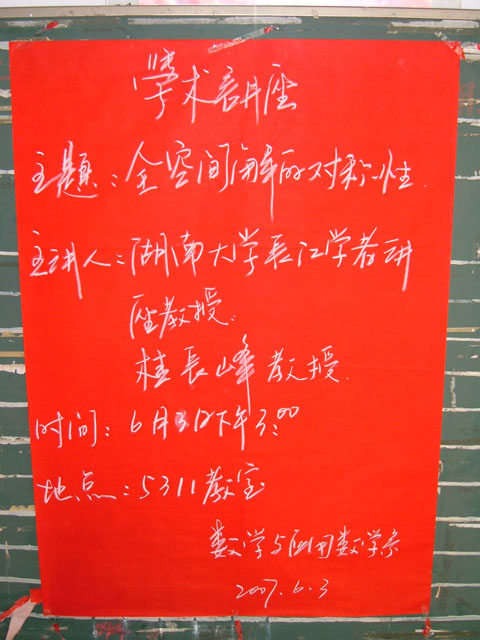 學术講座
主题:全空间解的对称性
主讲人:湖南大学長江学者讲
座教授
桂長峰教授
时间:6月3日下午3:00
地点:5311教室
数学与应用数学系
2007.6.3